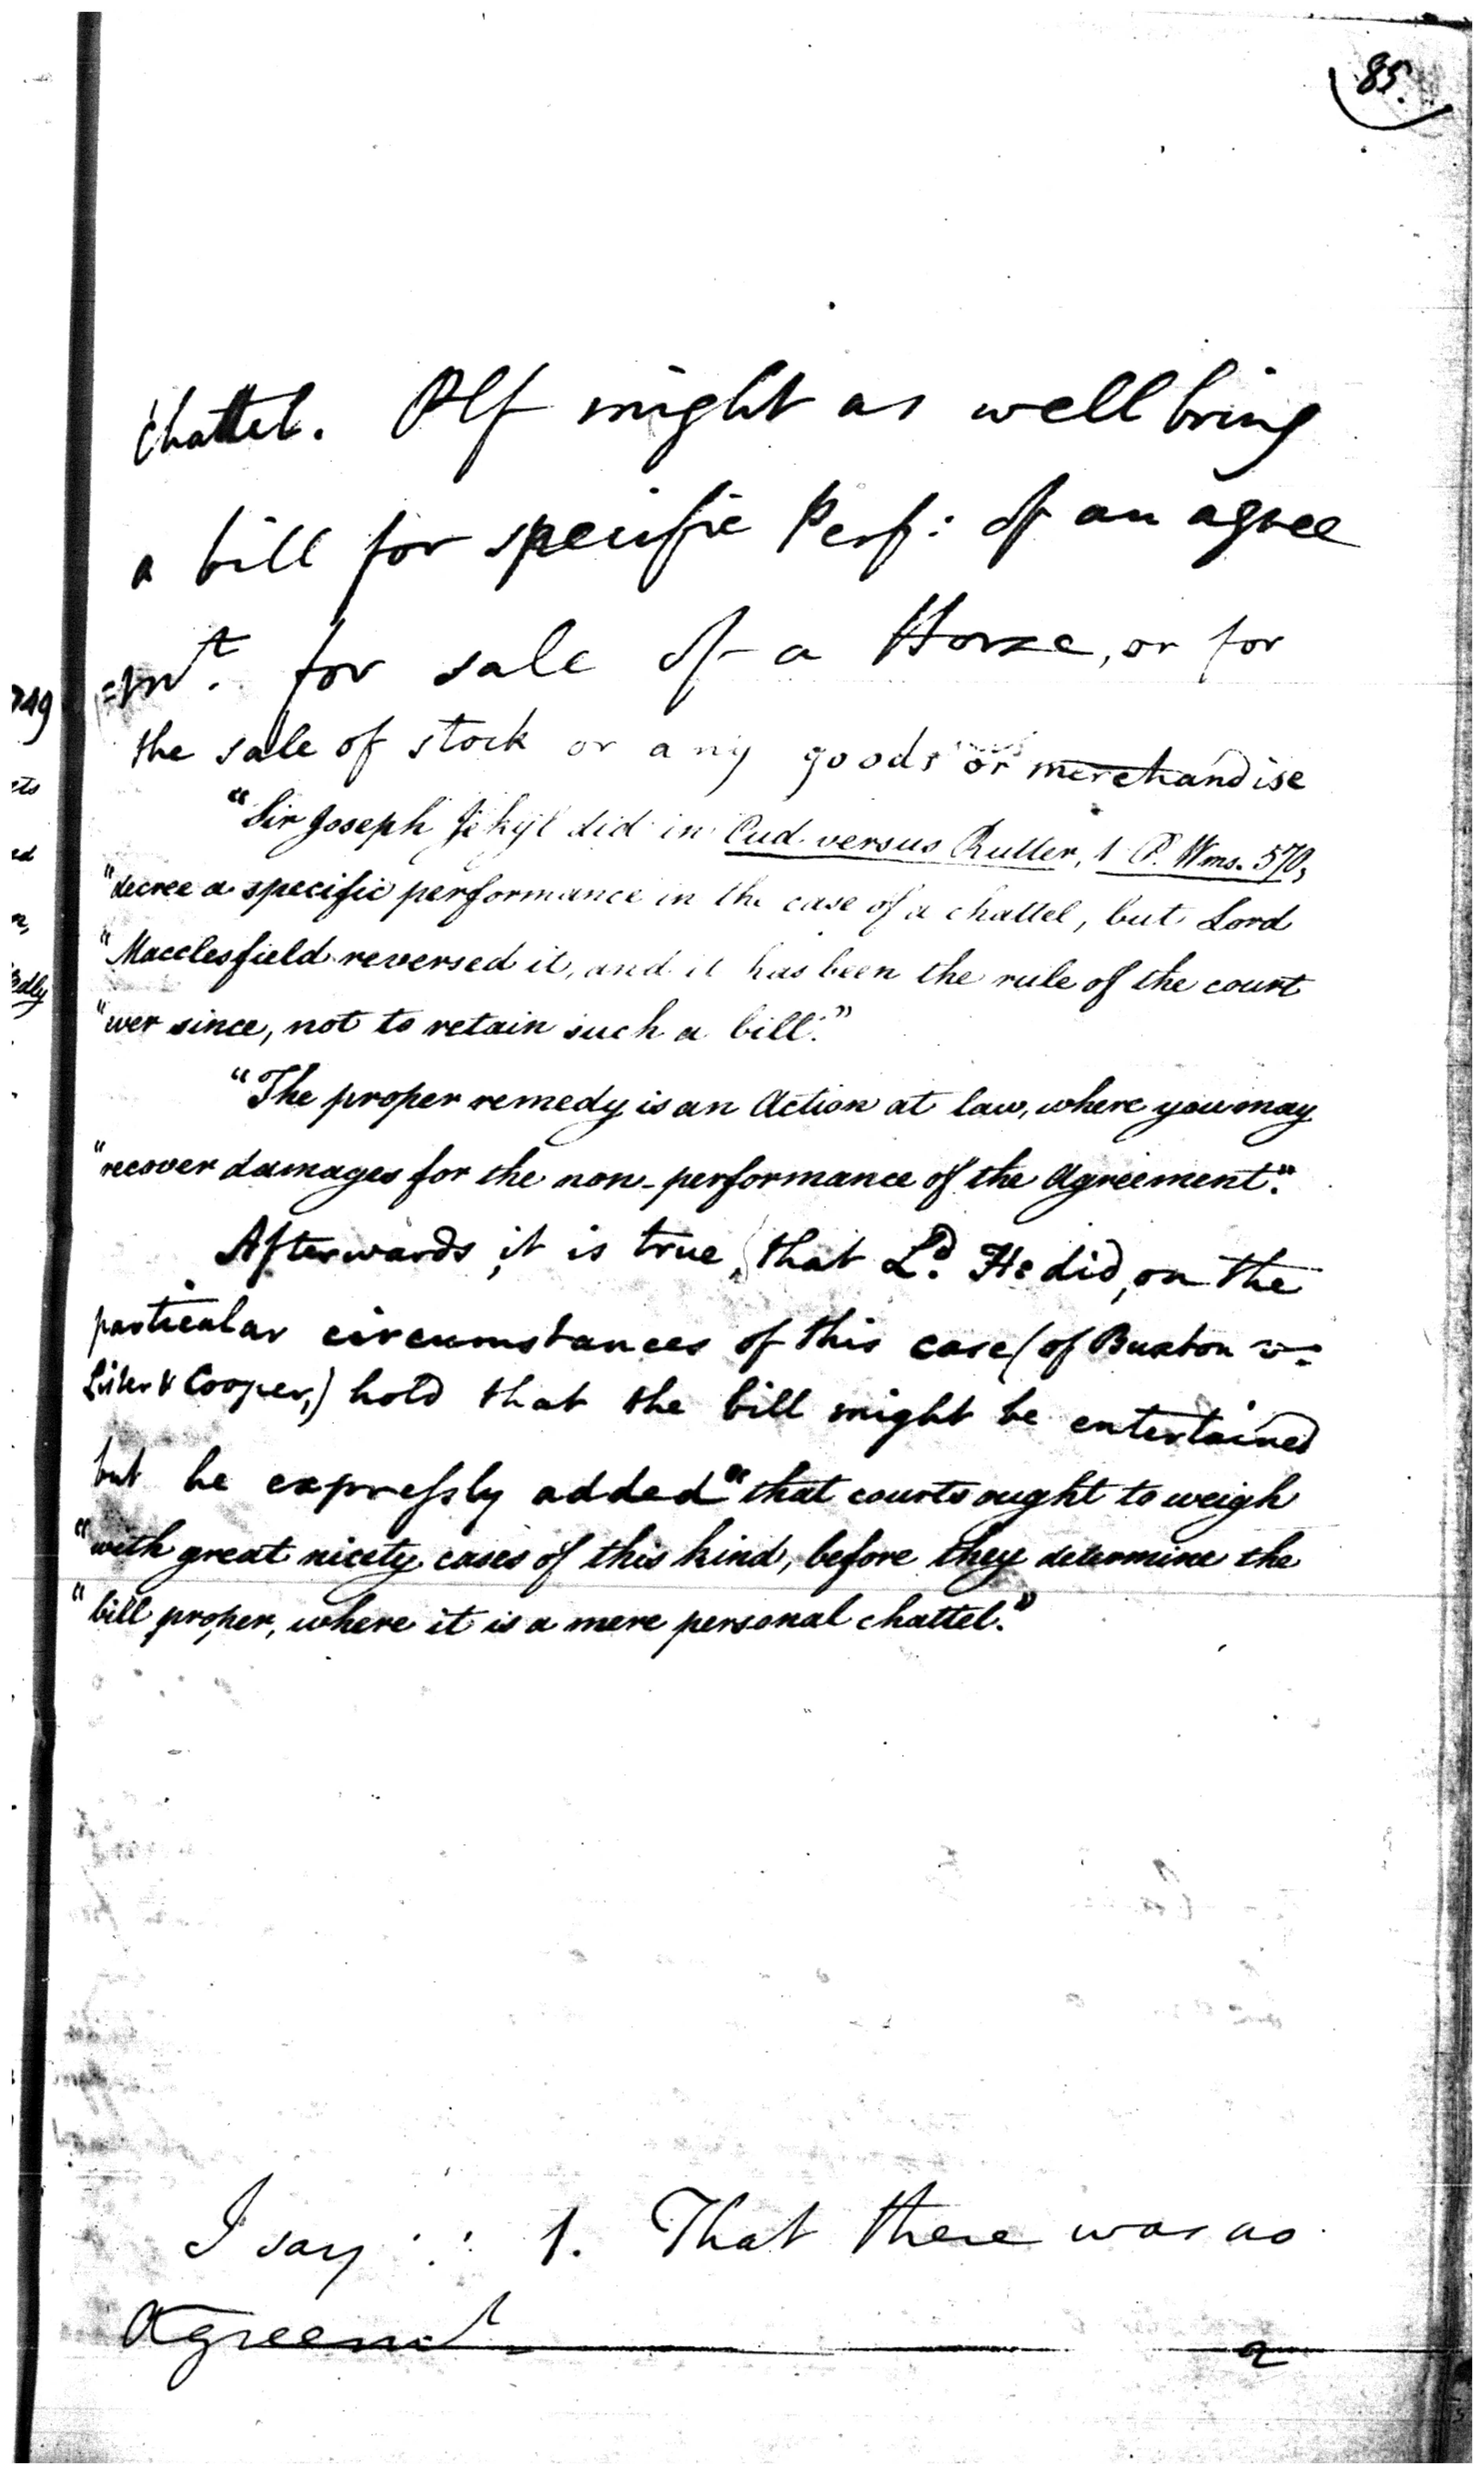 85.
Chattel. Plf might as well bring
a bill for specific Perf: of an agree
=mt. for sale of a Horse, or for
the sale of stock or any goods or merchandise
"Sir Joseph Jekyl did in Cud versus Rutter, 1 P. Wms. 570,
"decree a specific performance in the case of a chattel, but Lord
"Macclesfield reversed it, and it has been the rule of the court
"ever since, not to retain such a bill."
"The proper remedy is an Action at law, where you may
"recover damages for the non-performance of the Agreement."
Afterwards, it is true, that Ld. H: did, on the
particular circumstances of this case (of Buxton v.
Lister & Cooper,) hold that the bill might be entertained
but he expressly added "that courts ought to weigh
"with great nicety cases of this kind, before they determine the
"bill proper, where it is a mere personal chattel."
I say : : 1. That there was no
Agreemt